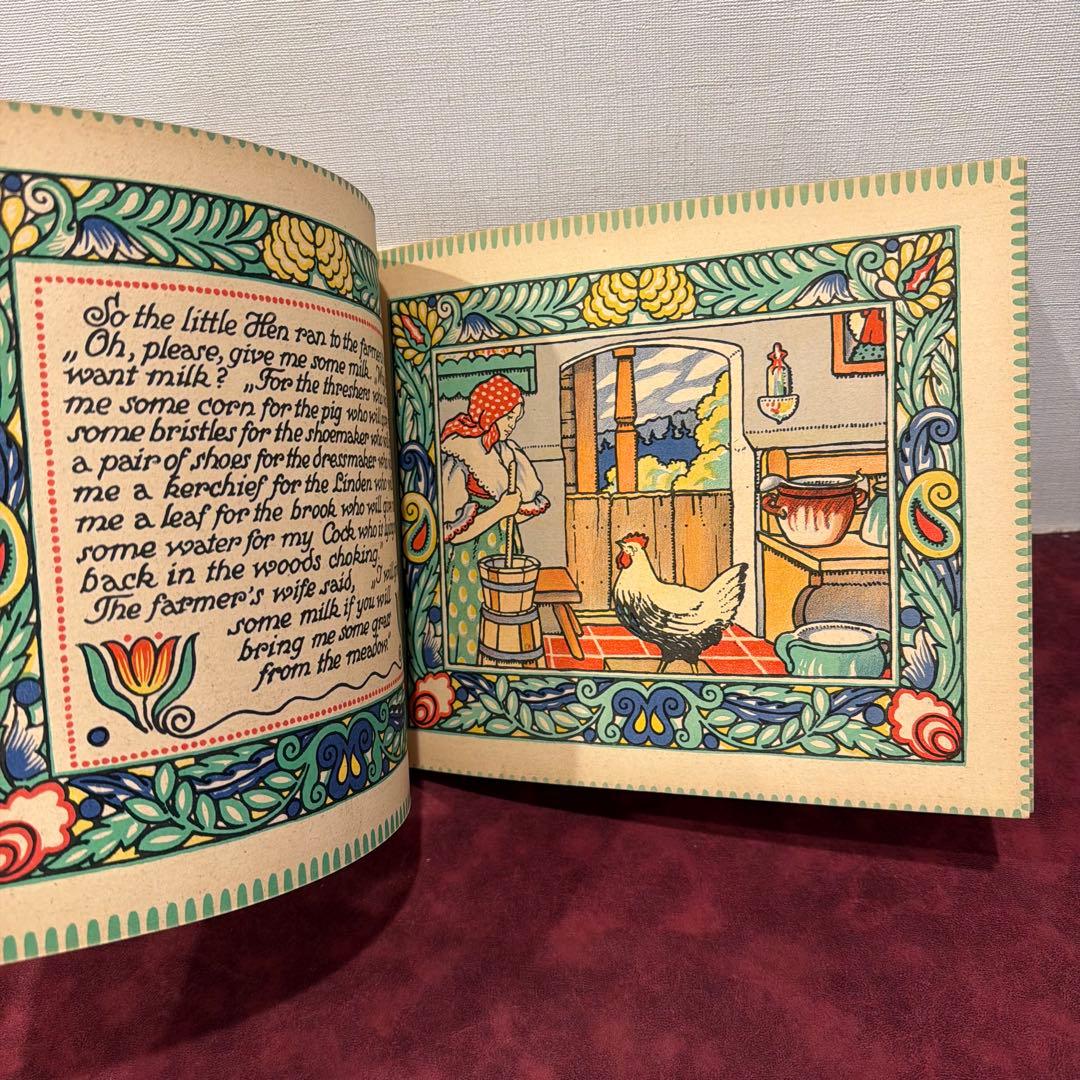 So the little Hen ran to the farmer
„Oh, please, give me some milk.
want milk? „For the threshers who
me some corn for the pig who will
some bristles for the shoemaker who
a pair of shoes for the dressmaker who
me a kerchief for the Linden who
me a leaf for the brook who will
some water for my Cock who is
back in the woods choking."
The farmer's wife said, „I will
some milk if you will
bring me some grass
from the meadow."